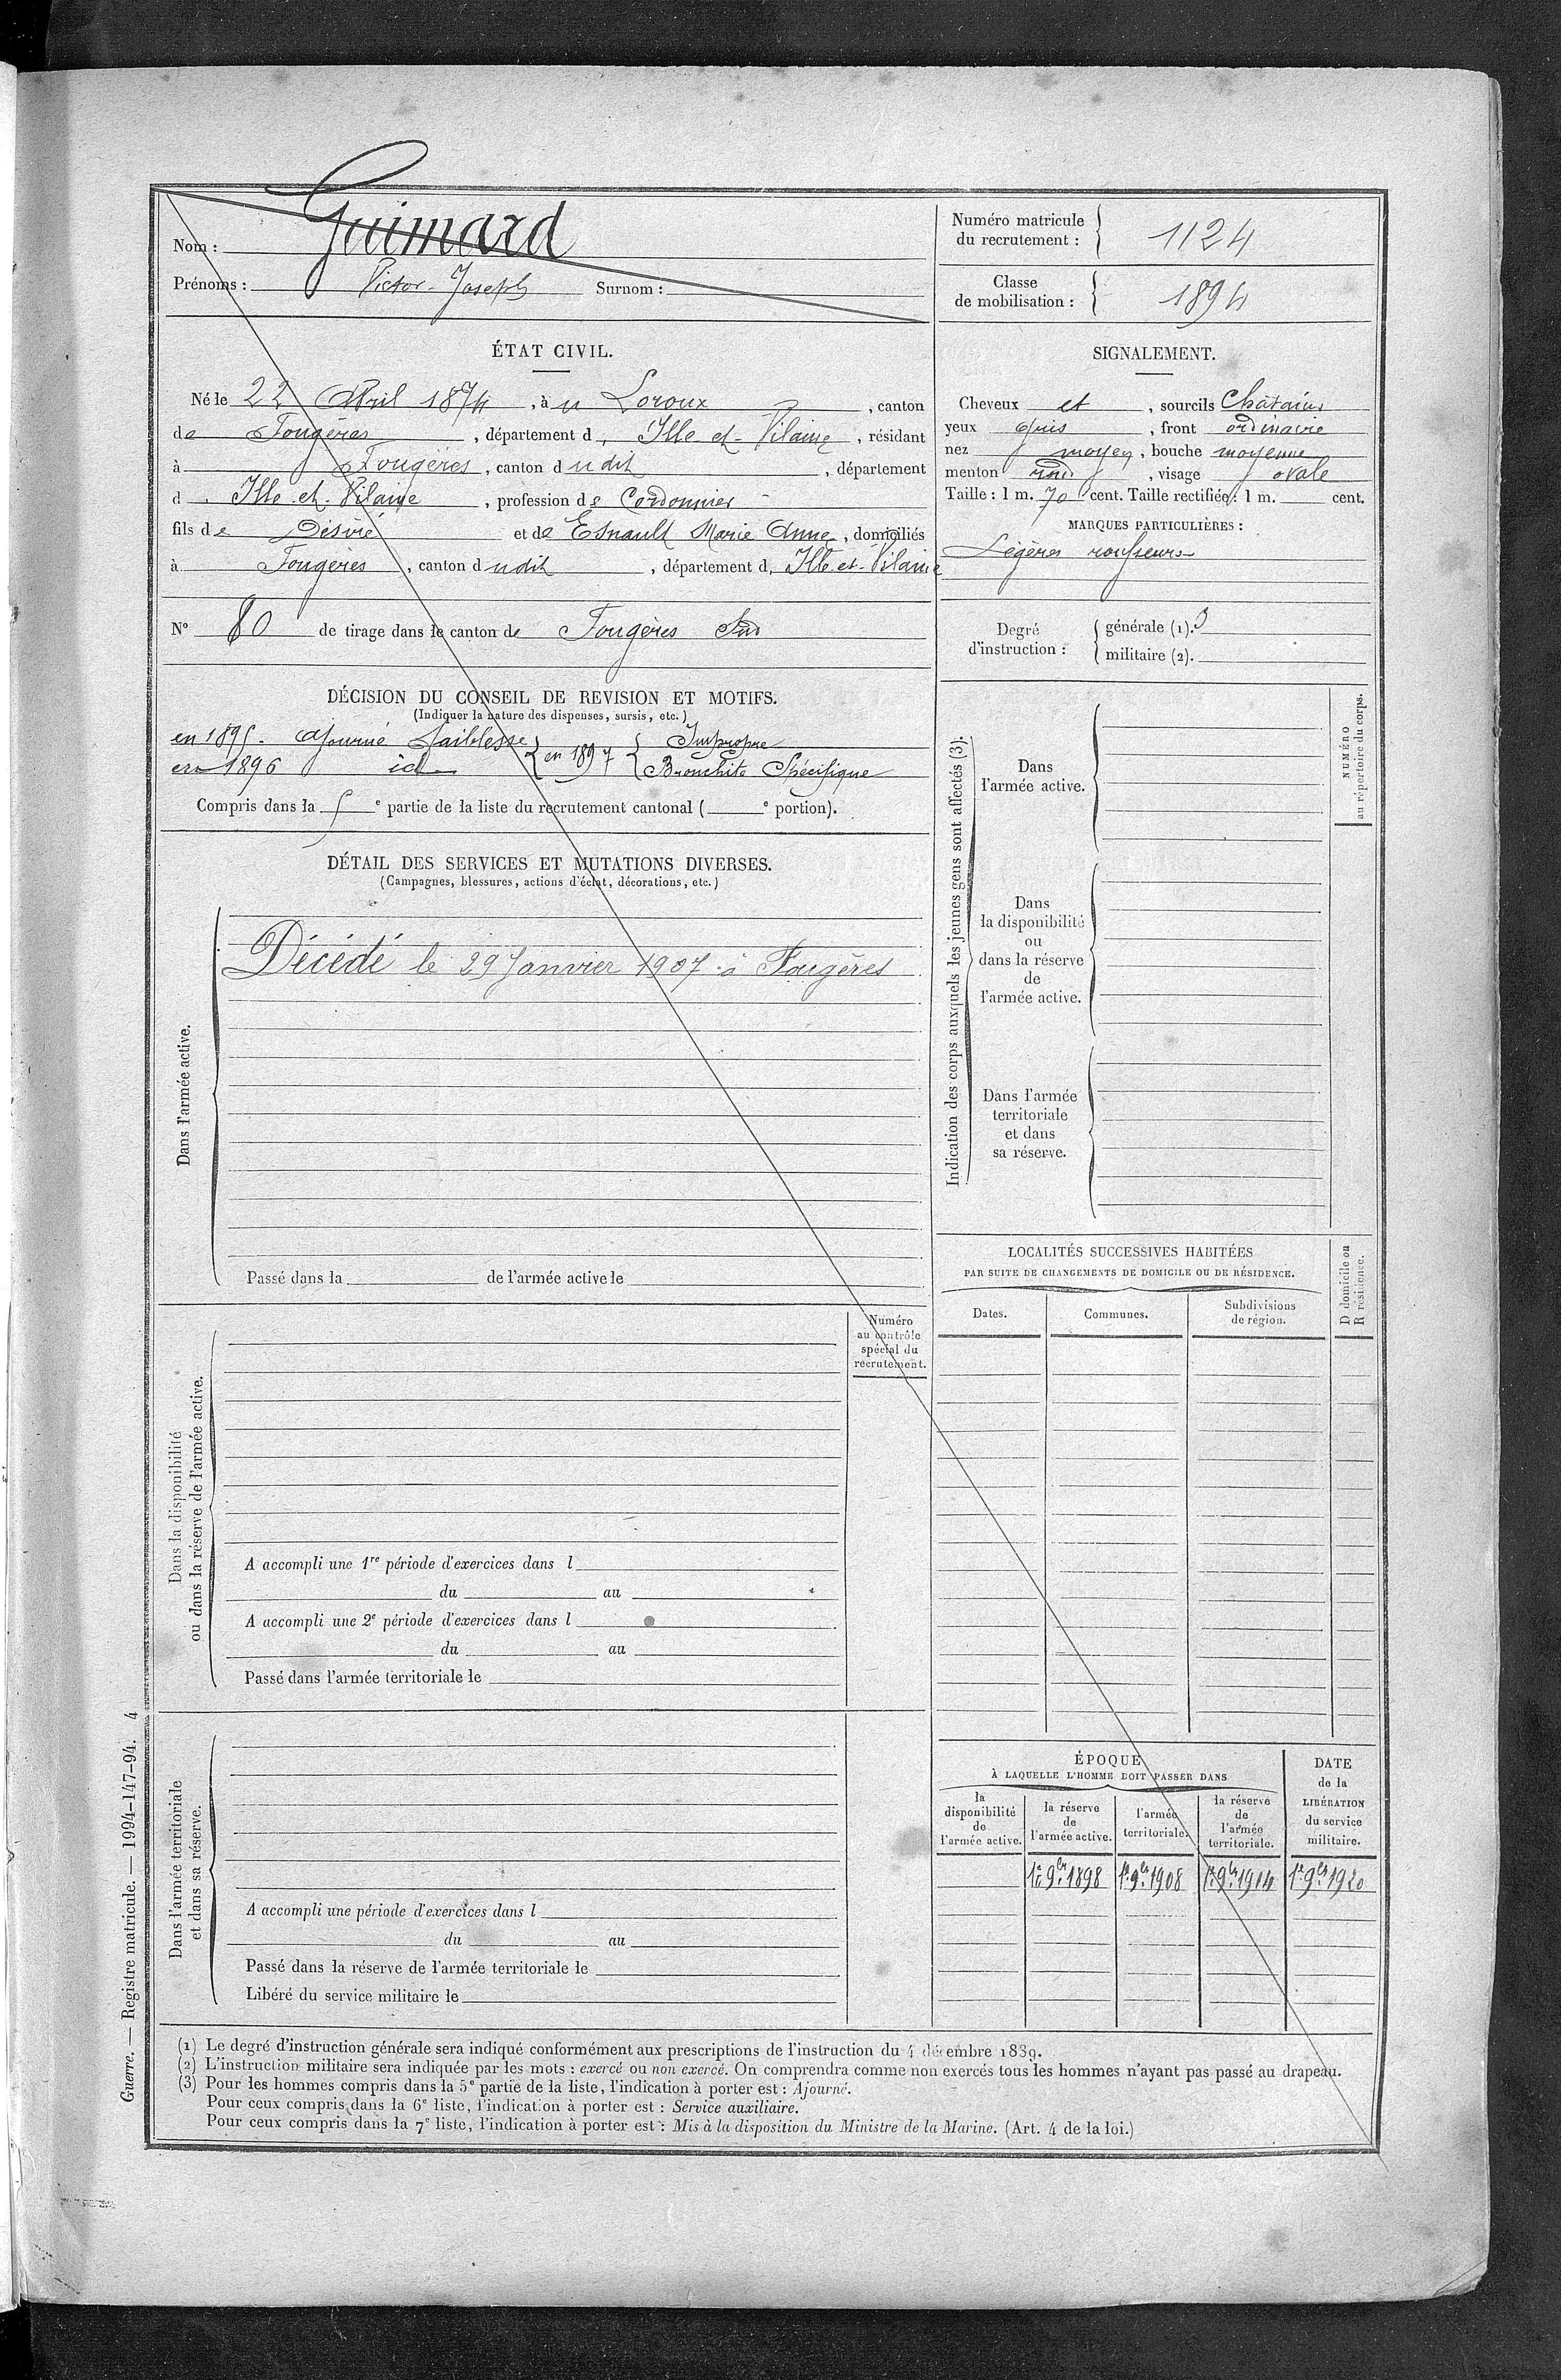 Nom : Guimard
Prénoms : Victor-Joseph Surnom :
Numéro matricule du recrutement : 1124
Classe de mobilisation : 1894
ÉTAT CIVIL.
Né le 22 Avril 1874, à u Loroux, canton
de Fougères, département d, Ille et-Vilaine, résidant
à Fougères, canton dudit, département
d. Ille-et-Vilaine, profession de Cordonnier
fils de Désiré et de Esnault Marie Anne, domiciliés
à Fougères, canton dudit, département d, Ille-et-Vilaine
N° 80 de tirage dans le canton de Fougères Sud
SIGNALEMENT.
Cheveux et, sourcils Châtains
yeux gris, front ordinaire
nez moyen, bouche moyenne
menton rond, visage ovale
Taille : 1 m. 70 cent. Taille rectifiée : 1 m. cent.
MARQUES PARTICULIÈRES :
Légères rousseurs
Degré d'instruction :
générale (1). 3
militaire (2).
DÉCISION DU CONSEIL DE REVISION ET MOTIFS.
(Indiquer la nature des dispenses, sursis, etc.)
en 1895. Ajourné faiblesse
en 1896 id
en 1897
Impropre
Bronchite Spécifique
Compris dans la 5e partie de la liste du recrutement cantonal ( e portion).
DÉTAIL DES SERVICES ET MUTATIONS DIVERSES.
(Campagnes, blessures, actions d'éclat, décorations, etc.)
Dans l'armée active.
Décédé le 29 Janvier 1907 à Fougères
Passé dans la de l'armée active le
Indication des corps auxquels les jeunes gens sont affectés (3).
NUMÉRO
au répertoire du corps.
Dans
l'armée active.
Dans
la disponibilité
ou
dans la réserve
de
l'armée active.
Dans l'armée
territoriale
et dans
sa réserve.
LOCALITÉS SUCCESSIVES HABITÉES
PAR SUITE DE CHANGEMENTS DE DOMICILE OU DE RÉSIDENCE.
D domicile ou
R résidence.
Dates.
Communes.
Subdivisions
de région.
Dans la disponibilité
ou dans la réserve de l'armée active.
Numéro
au contrôle
spécial du
recrutement.
A accompli une 1re période d'exercices dans l
du au
A accompli une 2e période d'exercices dans l
du au
Passé dans l'armée territoriale le
Dans l'armée territoriale
et dans sa réserve.
A accompli une période d'exercices dans l
du au
Passé dans la réserve de l'armée territoriale le
Libéré du service militaire le
ÉPOQUE
À LAQUELLE L'HOMME DOIT PASSER DANS
la
disponibilité
de
l'armée active.
la réserve
de
l'armée active.
l'armée
territoriale.
la réserve
de
l'armée
territoriale.
DATE
de la
LIBÉRATION
du service
militaire.
1er 9bre 1898
1er 9bre 1908
1er 9bre 1914
1er 9bre 1920
(1) Le degré d'instruction générale sera indiqué conformément aux prescriptions de l'instruction du 4 décembre 1889.
(2) L'instruction militaire sera indiquée par les mots : exercé ou non exercé. On comprendra comme non exercés tous les hommes n'ayant pas passé au drapeau.
(3) Pour les hommes compris dans la 5e partie de la liste, l'indication à porter est : Ajourné.
Pour ceux compris dans la 6e liste, l'indication à porter est : Service auxiliaire.
Pour ceux compris dans la 7e liste, l'indication à porter est : Mis à la disposition du Ministre de la Marine. (Art. 4 de la loi.)
Guerre. — Registre matricule. — 1994-147-94. 4